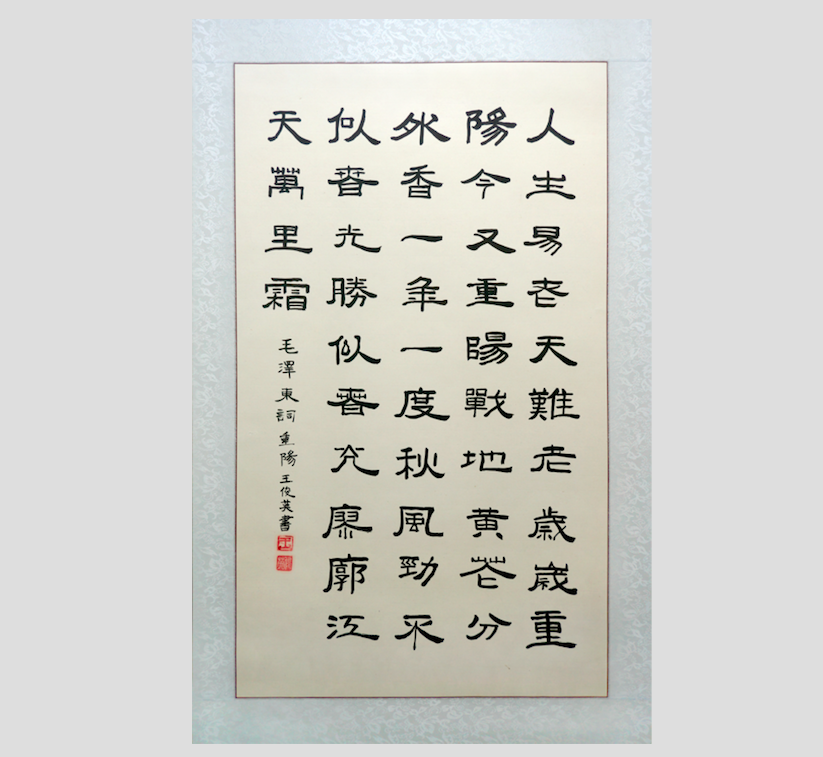 人生易老天難老歲歲重
陽今又重陽戰地黄花分
外香一年一度秋風勁不
似春光勝似春光寥廓江
天萬里霜
毛澤東詞重陽王俊英書